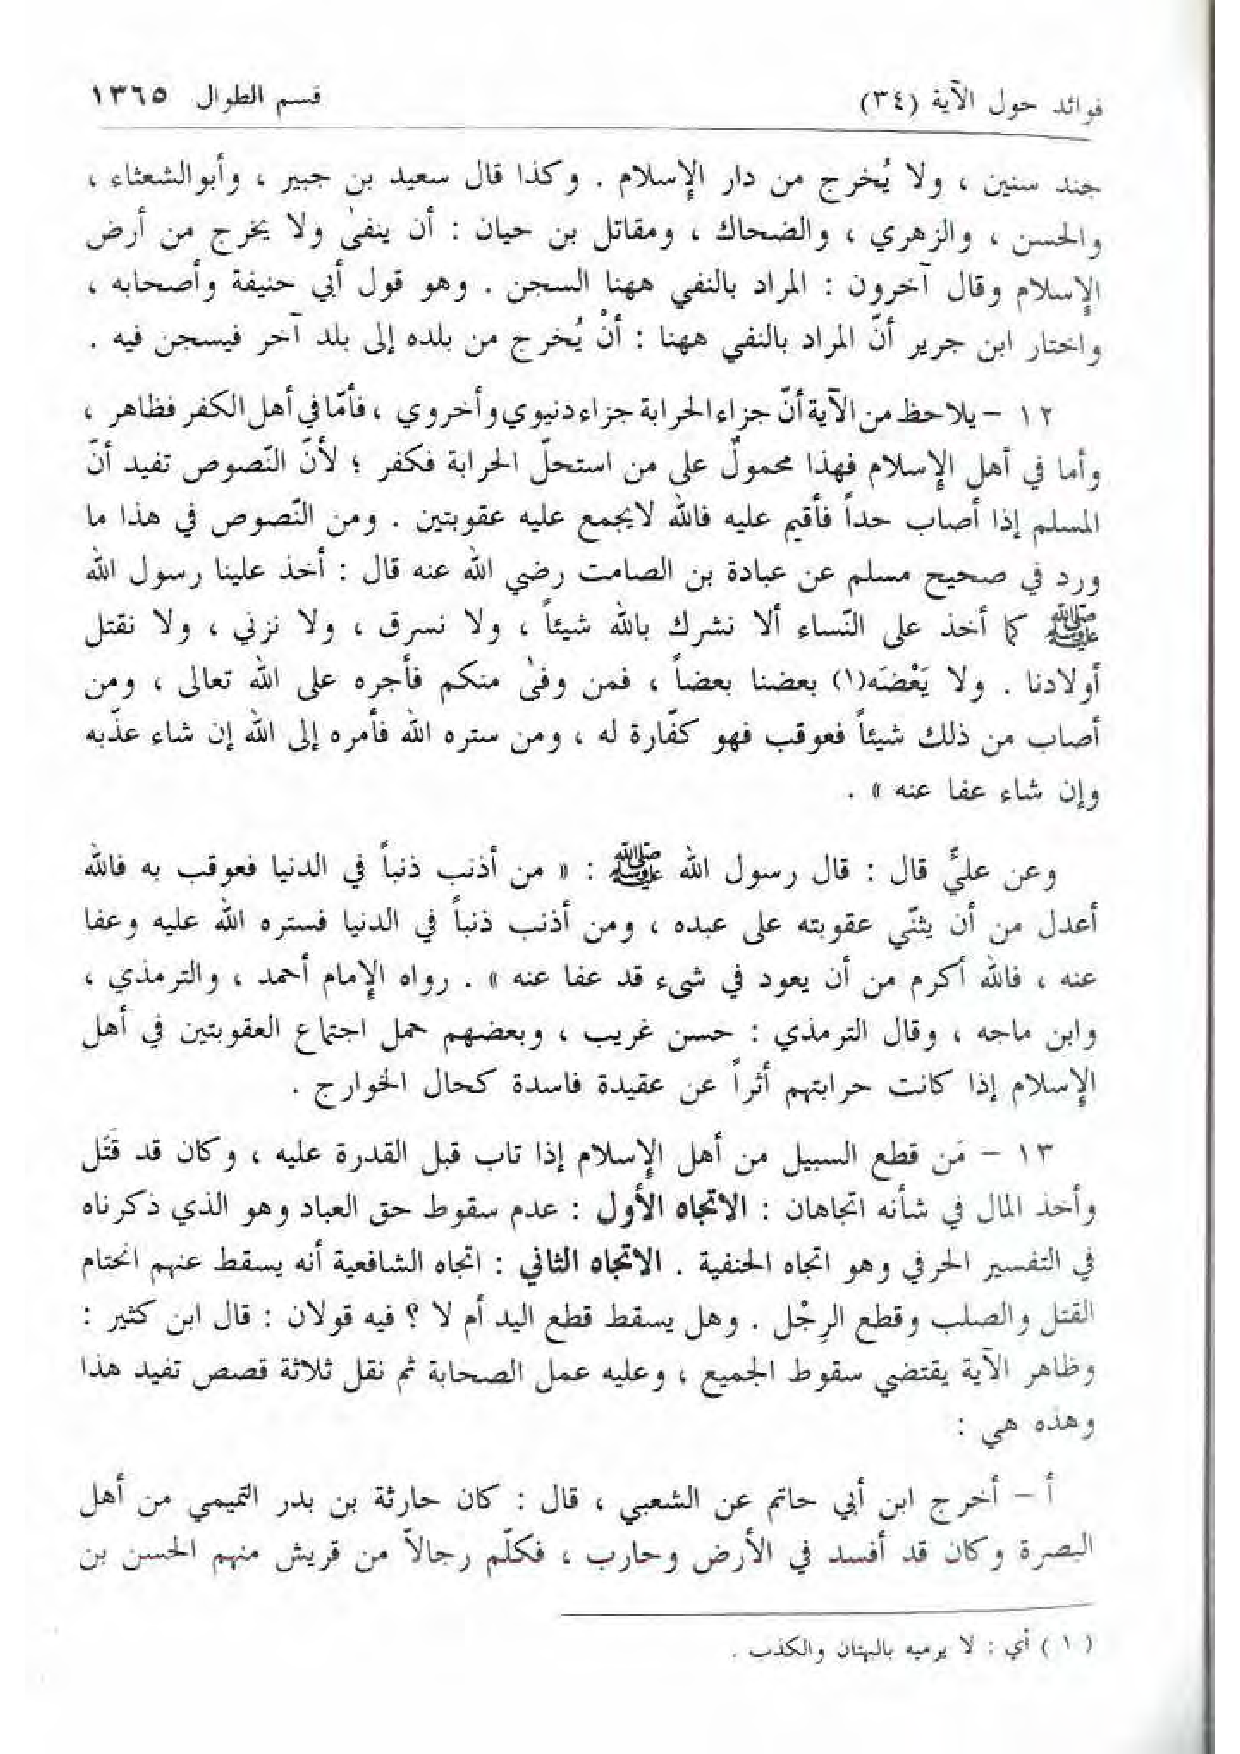 فوائد حول الآية (٣٤) قسم الطوال ١٣٦٥
جند سنين ، ولا يُخرج من دار الإسلام . وكذا قال سعيد بن جبير ، وأبو الشعثاء ،
والحسن ، والزهري ، والضحاك ، ومقاتل بن حيان : أن ينفىٰ ولا يخرج من أرض
الإسلام وقال آخرون : المراد بالنفي ههنا السجن . وهو قول أبي حنيفة وأصحابه ،
واختار ابن جرير أنّ المراد بالنفي ههنا : أنْ يُخرج من بلده إلى بلد آخر فيسجن فيه .
١٢ – يلاحظ من الآية أنّ جزاء الحرابة جزاء دنيوي وأخروي ، فأمّا في أهل الكفر فظاهر ،
وأما في أهل الإسلام فهذا محمولٌ على من استحلّ الحرابة فكفر ؛ لأنّ النّصوص تفيد أنّ
المسلم إذا أصاب حداً فأقيم عليه فالله لايجمع عليه عقوبتين . ومن النّصوص في هذا ما
ورد في صحيح مسلم عن عبادة بن الصامت رضي الله عنه قال : أخذ علينا رسول الله
ﷺ كما أخذ على النّساء ألا نشرك بالله شيئاً ، ولا نسرق ، ولا نزني ، ولا نقتل
أولادنا . ولا يَعْضَه(١) بعضنا بعضاً ، فمن وفىٰ منكم فأجره على الله تعالى ، ومن
أصاب من ذلك شيئاً فعوقب فهو كفّارة له ، ومن ستره الله فأمره إلى الله إن شاء عذّبه
وإن شاء عفا عنه » .
وعن عليٍّ قال : قال رسول الله ﷺ : « من أذنب ذنباً في الدنيا فعوقب به فالله
أعدل من أن يثنّي عقوبته على عبده ، ومن أذنب ذنباً في الدنيا فستره الله عليه وعفا
عنه ، فالله أكرم من أن يعود في شيء قد عفا عنه » . رواه الإمام أحمد ، والترمذي ،
وابن ماجه ، وقال الترمذي : حسن غريب ، وبعضهم حمل اجتماع العقوبتين في أهل
الإسلام إذا كانت حرابتهم أثراً عن عقيدة فاسدة كحال الخوارج .
١٣ – مَن قطع السبيل من أهل الإسلام إذا تاب قبل القدرة عليه ، وكان قد قَتَل
وأخذ المال في شأنه اتجاهان : الاتجاه الأول : عدم سقوط حق العباد وهو الذي ذكرناه
في التفسير الحرفي وهو اتجاه الحنفية . الاتجاه الثاني : اتجاه الشافعية أنه يسقط عنهم انحتام
القتل والصلب وقطع الرِجْل . وهل يسقط قطع اليد أم لا ؟ فيه قولان : قال ابن كثير :
وظاهر الآية يقتضي سقوط الجميع ، وعليه عمل الصحابة ثم نقل ثلاثة قصص تفيد هذا
وهذه هي :
أ – أخرج ابن أبي حاتم عن الشعبي ، قال : كان حارثة بن بدر التميمي من أهل
البصرة وكان قد أفسد في الأرض وحارب ، فكلّم رجالاً من قريش منهم الحسن بن
( ١ ) أي : لا يرميه بالبهتان والكذب .